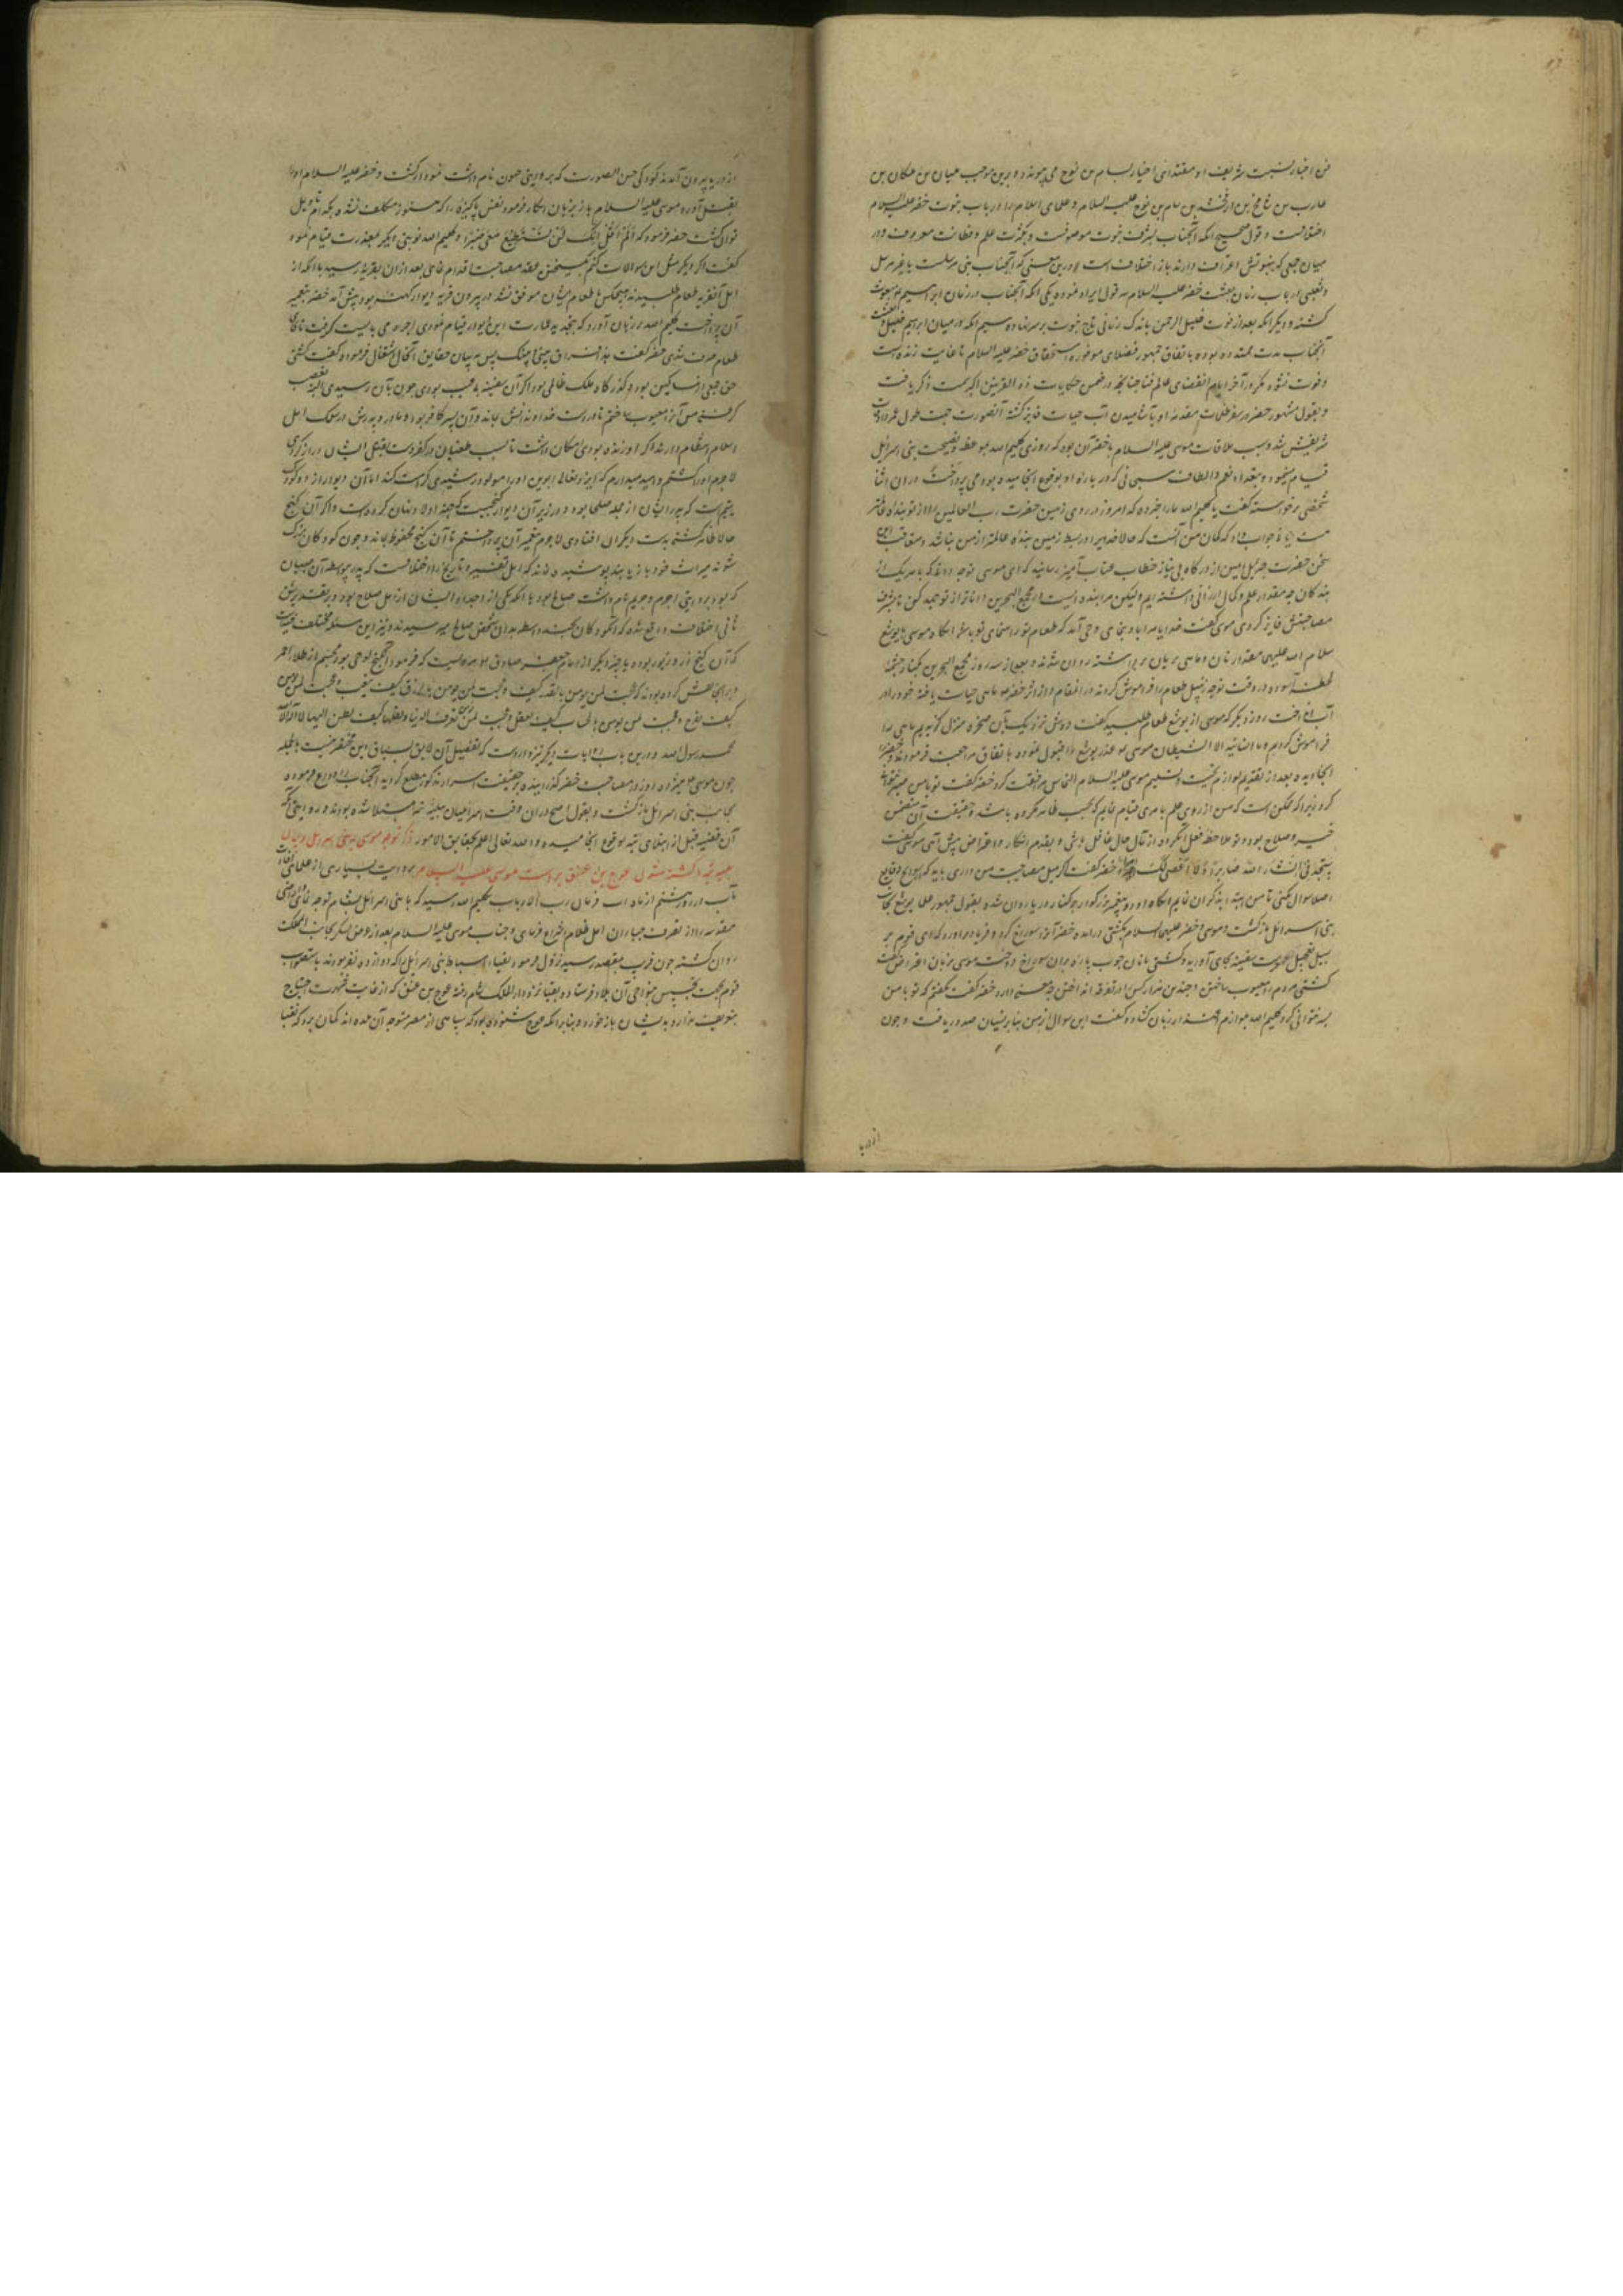 فن اخبار نسبت شریف او مقتدای اخیار بسام بن نوح می پیوندد و برین موجب بلیان بن ملکان بن
عابر بن شالخ بن ارفخشد بن سام بن نوح علیه السلام و علمای اسلام را در باب نبوت خضر علیه السلام
اختلافست و قول صحیح آنکه آنجناب بشرف نبوت موصوفست و بکثرت علم و فطانت معروف و در
میان جمعی که بنبوتش اعتراف دارند باز اختلاف است درین معنی که آنجناب نبی مرسلست یا غیر مرسل
و ثعلبی در باب زمان بعثت خضر علیه السلام سه قول ایراد نموده یکی آنکه آنجناب در زمان ابراهیم مبعوث
کشته و دیگر آنکه بعد از فوت خلیل الرحمن باندک زمانی تاج نبوت بر سر نهاده سیم آنکه در میان ابراهیم خلیل
آنجناب مدت ممتد بوده باتفاق جمهور فضلای موفور استحقاق خضر علیه السلام تا غایت زنده است
و فوت نشود مگر در آخر ایام انقضای عالم فنا چنانچه در ضمن حکایات ذو القرنین اکبر سمت ذکر یافت
و بقول مشهور خضر در سفر ظلمات مقدمه او بآشامیدن آب حیات فایز کشته آنصورت جهت طول عمر
شریفش شد و سبب ملاقات موسی علیه السلام با خضر آن بود که روزی کلیم الله بموعظه و نصیحت بنی اسرائیل
قیام مینمود و بتعداد نعم و الطاف سبحانی که در باره او بوقوع انجامیده بود می پرداخت در آن اثنا
شخصی برخواسته کفت یا کلیم الله ما را خبر ده که امروز در روی زمین حضرت رب العالمین را از تو بنده فاضلتر
هست یا نه جواب داد که کمان من آنست که حالا خدایرا در بسیط زمین بنده عالمتر از من نباشد و متعاقب این
سخن حضرت جبرئیل امین از درگاه بی نیاز خطاب عتاب آمیز رسانید که ای موسی توجه دانی که با هر یک از
بندکان چه مقدار علم و کمال ارزانی داشته ایم ولیکن مرا بنده ایست در مجمع البحرین داناتر از تو جهد کن تا بشرف
مصاحبتش فایز کردی موسی کفت خدایا مرا باو بنمای وحی آمد که طعام تو راهنمای تو باشد آنگاه موسی با یوشع
سلام الله علیهما مقدار نان و ماهی بریان برداشته روان شدند و بعد از سه روز بمجمع البحرین بکنار چشمه
لحظه آسوده در وقت توجه زنبیل طعام را فراموش کردند در انمقام و از اثر خضر ماهی حیات یافته خود را در
آب انداخت روز دیگر که موسی از یوشع طعام طلبید کفت دوش نزدیک بآن صخره منزل گزیدیم ماهی را
فراموش کردیم و ما انسانیه الا الشیطان موسی عذر یوشع را قبول نموده باتفاق مراجعت فرمودند و خضر را
آنجا دیده بعد از تقدیم لوازم تحیت و تسلیم موسی علیه السلام التماس مرافقت کرد خضر کفت تو با من صبر نتوانی
کرد زیرا که ممکن است که من از روی علم بامری قیام نمایم که بحسب ظاهر مکروه باشد و حقیقت آن متضمن
خیر و صلاح بود و تو ملاحظه فعل آنکرده از مآل حال غافل باشی و بقدم انکار و اعتراض پیش آئی موسی کفت
ستجدنی ان شاء الله صابرا و لا اعصی لک امرا خضر کفت اگر میل مصاحبت من داری باید که از هیچ وقایع
اصلا سوال نکنی تا من ابتدا بذکر آن نمایم آنگاه دو پیغمبر بزرگوار بر کنار دریا روان شده بقول جمهور علما یوشع بجانب
بنی اسرائیل بازکشت و موسی و خضر علیهما السلام بکشتی درآمده خضر آنرا سوراخ کرد و فریاد برآورد که ای قوم بر
سبیل تعجیل مرمت سفینه بجای آورید و کشتی بانان چوب پاره بران سوراخ دوخته موسی بزبان اعتراض کفت
کشتی مردم را معیوب ساختن و چندین هزار کس را در تفرقه انداختن چه معنی دارد خضر کفت نکفتم که تو با من
صبر نتوانی کرد کلیم الله بلوازم اعتذار زبان کشاد و کفت این سوال از من بنابر نسیان صدور یافت و چون
از دریا
از دریا بیرون آمدند کودکی حسن الصورت که بروایتی حسون نام داشت نمودار کشت و خضر علیه السلام او را
بقتل آورد موسی علیه السلام باز بر زبان انکار فرمود نفس پاکیزه را که هنوز مکلف نشده بکدام تاویل
توان کشت خضر فرمود که الم اقل لک انک لن تستطیع معی صبرا و کلیم الله نوبتی دیگر بمعذرت قیام نموده
کفت اگر دیگر مثل این سوالات کنم فسخ عقد مصاحبت اقدام نمای بعد از ان بقریه رسیده با آنکه از
اهل آنقریه طعام طلبیدند هیچکس باطعام ایشان موفق نشد در بیرون قریه دیواری کهنه بود پیش آمد خضر بتعمیر
آن پرداخت کلیم الله بر زبان آورد که بتجدید عمارت این دیوار قیام نمودی اجره می بایست گرفت تا در
طعام صرف شدی خضر کفت هذا فراق بینی و بینک پس به بیان حقایق آنحال اشتغال فرموده کفت کشتی
حق جمعی از مساکین بود و گذرگاه ملک ظالمی بود اگر آن سفینه بی عیب بودی چون بآن رسیدی البته بغصب
گرفتی من آنرا معیوب ساختم تا در دست خداوندانش بماند و آن پسر کافر بود و مادر و پدرش در سلک اهل
اسلام انتظام دارند اگر او زنده بودی امکان داشت تا سبب طغیان در کفر دست
لاجرم او را کشتم و امید میدارم که ایزد تعالی ابوین او را مولود رشیدی کرامت کند اما آن دیوار از دو کودک
یتیم است که پدر ایشان از جمله صلحا بود و در زیر آن دیوار گنجیست که جهت اولاد پنهان کرده است و اگر آن گنج
حالا ظاهر کشته بدست دیگران افتادی لاجرم بتعمیر آن پرداختم تا آن گنج محفوظ بماند و چون کودکان بزرگ
شوند میراث خود باز یابند پوشیده نماند که اهل تفسیر و تاریخ را اختلافست که پدر بواسطه آن صبیان
که بود بروایتی اجرم و جریم نام داشت صالح بود یا آنکه یکی از اجداد ایشان از اهل صلاح بود و بر تقدیر شق
ثانی اختلاف واقع شده که آنکودکان بچند واسطه بدان شخص صالح میرسیدند و نیز این مسئله مختلف فیه است
که آن گنج از زر و زیور بوده یا چیز دیگر از امام جعفر صادق مرویست که فرمود آنگنج لوحی بود مجسم از طلا احمر
و بر انجا نقش کرده بودند که عجبت لمن یومن بالقدر کیف و عجبت لمن یومن بالرزق کیف یتعب و عجبت لمن یومن
کیف یفرح و عجبت لمن یومن بالحساب کیف یغفل و عجبت لمن یعرف الدنیا و تقلبها کیف یطمئن الیها لا اله الا الله
محمد رسول الله و درین باب روایات دیگر نیز وارد است که تفصیل آن لایق بسیاق این مختصر نیست بالجمله
چون موسی هیجده روز در مصاحبت خضر گذرانیده بر حقیقت اسرار مذکور مطلع گردید آنجناب را وداع فرموده
بجانب بنی اسرائیل بازگشت و بقول اصح در آن وقت اسرائیلیان ببلیه تیه مبتلا شده بودند و بروایتی دیگر
آن قضیه قبل از ابتلای تیه بوقوع انجامیده و الله تعالی اعلم بحقایق الامور ذکر توجه موسی و بنی اسرائیل و بیان
کشته شدن عوج بن عنق بر دست موسی علیه السلام بروایت بسیاری از علمای
ماب در روز هشتم از ماه اب فرمان رب الارباب بکلیم الله رسید که با بنی اسرائیل بشام توجه نمای و ارض
مقدسه را از تصرف جباران اهل ظلام انتزاع فرمای و جناب موسی علیه السلام بعد از عرض لشکر بجانب انمملکت
روان کشته چون قریب بمقصد رسید نزول فرمود و نقباء اسباط بنی اسرائیل را که دوازده نفر بودند باستصواب
قوم بجهت تجسس نواحی آن بلاد فرستاده نقبا نزد دار الملک شام رفته عوج بن عنق که از غایت شهرت احتیاج
بتوصیف ندارد بدیشان باز خورده بنابر آنکه عوج شنوده بود که سپاهی از مصر متوجه آن حدود اند کمان برد که نقبا